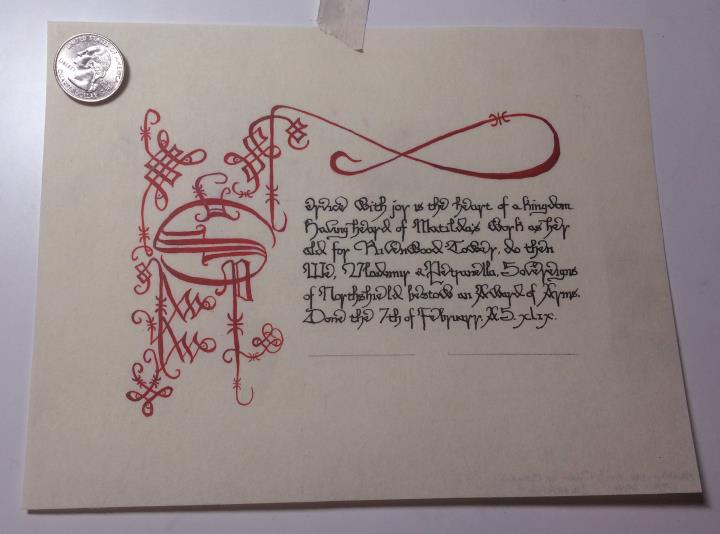 Service With joy is the heart of a kingdom
Having heard of Matilda's Work as her
ald for RavenWood Tower, do then
We, Vladimir & Petranella, Sovereigns
of Northshield bestow an Award of Arms.
Done the 7th of February, AS. xlix.
LIBERTY